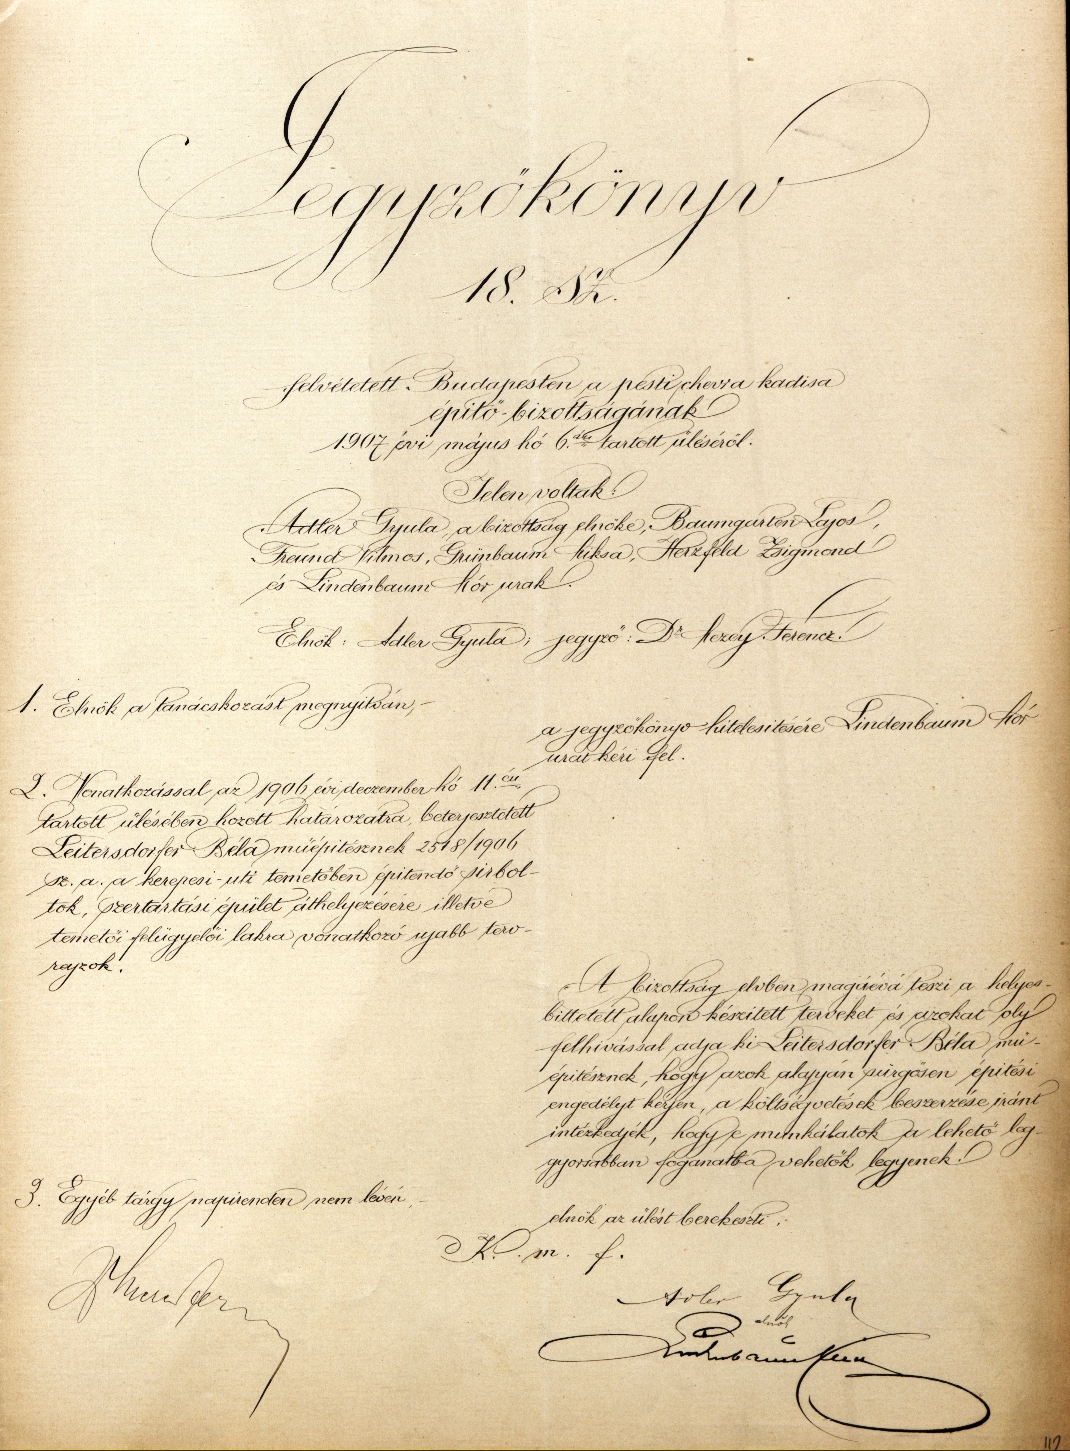 Jegyzőkönyv
18. Sz.
felvétetett Budapesten a pesti chevra kadisa
építő-bizottságának
1907 évi május hó 6.án tartott üléséről.
Jelen voltak:
Adler Gyula, a bizottság elnöke, Baumgarten Lajos,
Freund Vilmos, Grünbaum Miksa, Herzfeld Zsigmond
és Lindenbaum Mór urak.
Elnök: Adler Gyula; jegyző: Dr Mezey Ferencz.
1. Elnök a tanácskozást megnyitván,-
a jegyzőkönyv hitelesitésére Lindenbaum Mór
urat kéri fel.
2. Vonatkozással az 1906 évi deczember hó 11.én
tartott ülésében hozott határozatra, beterjesztetett
Leitersdorfer Béla műépitésznek 2518/1906
sz. a. a kerepesi-uti temetőben épitendő sirbol-
tok, szertartási épület áthelyezésére illetve
temetői felügyelői lakra vonatkozó ujabb terv-
rajzok.
A bizottság elvben magáévá teszi a helyes-
bittetett alapon készitett terveket és azokat oly
felhivással adja ki Leitersdorfer Béla mű-
épitésznek, hogy azok alapján sürgősen épitési
engedélyt kérjen, a költségvetések beszerzése iránt
intézkedjék, hogy e munkálatok a lehető leg-
gyorsabban foganatba vehetők legyenek.
3. Egyéb tárgy napirenden nem lévén,-
elnök az ülést berekeszti.
K. m. f.
Adler Gyula
elnök
Lindenbaum
117